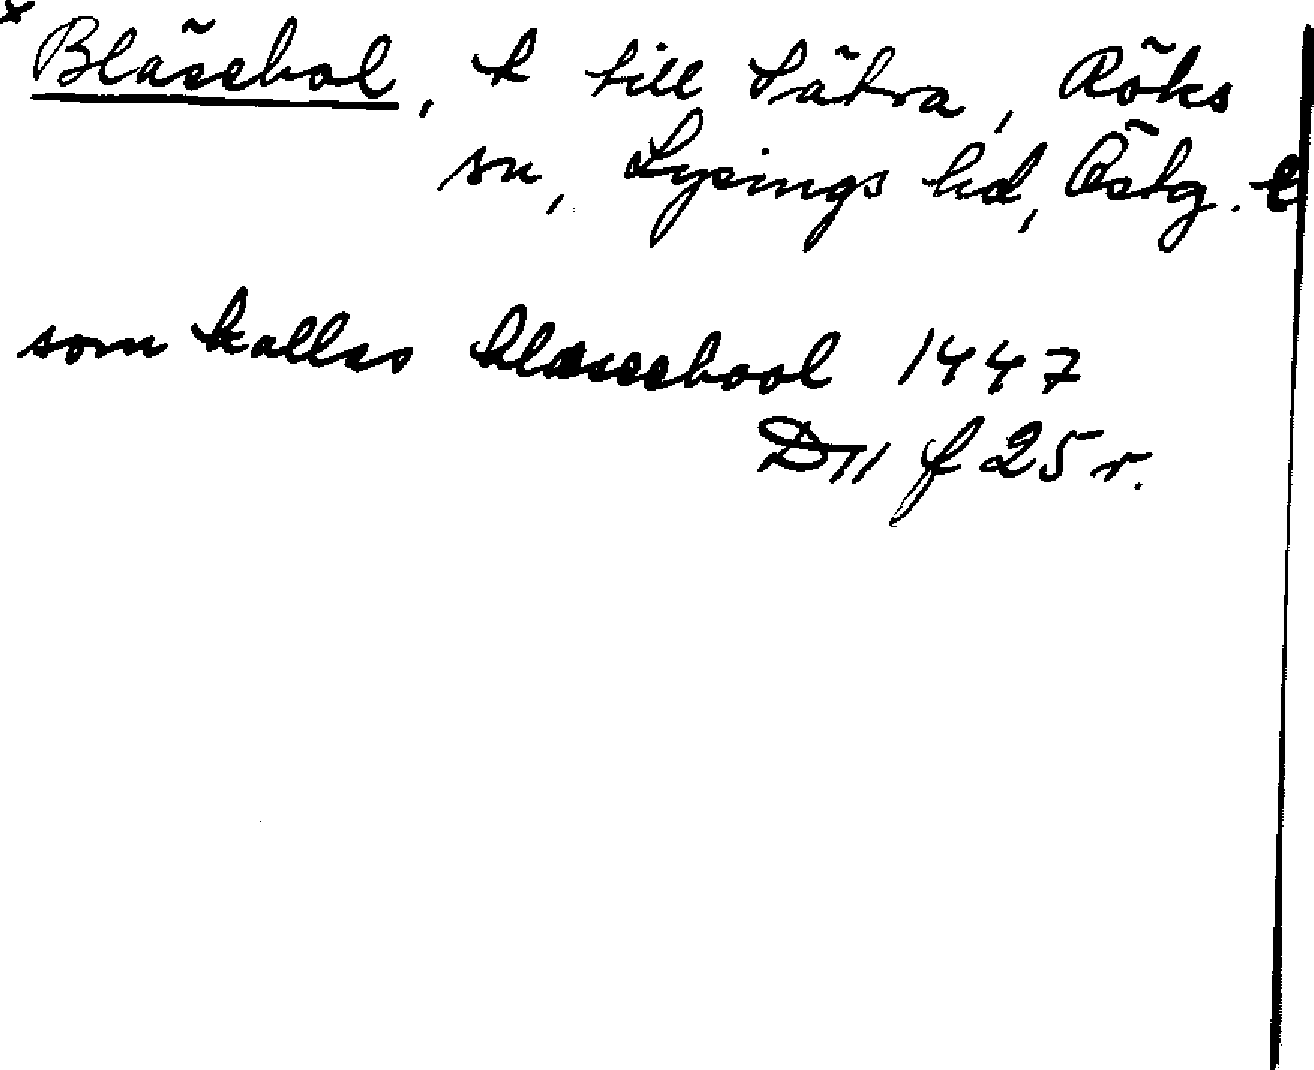 x
Bläsebol, t till Sätra, Röks
sn, Lysings hd, Östg. l
som kallas blæsebool 1447
D11 f 25 r.